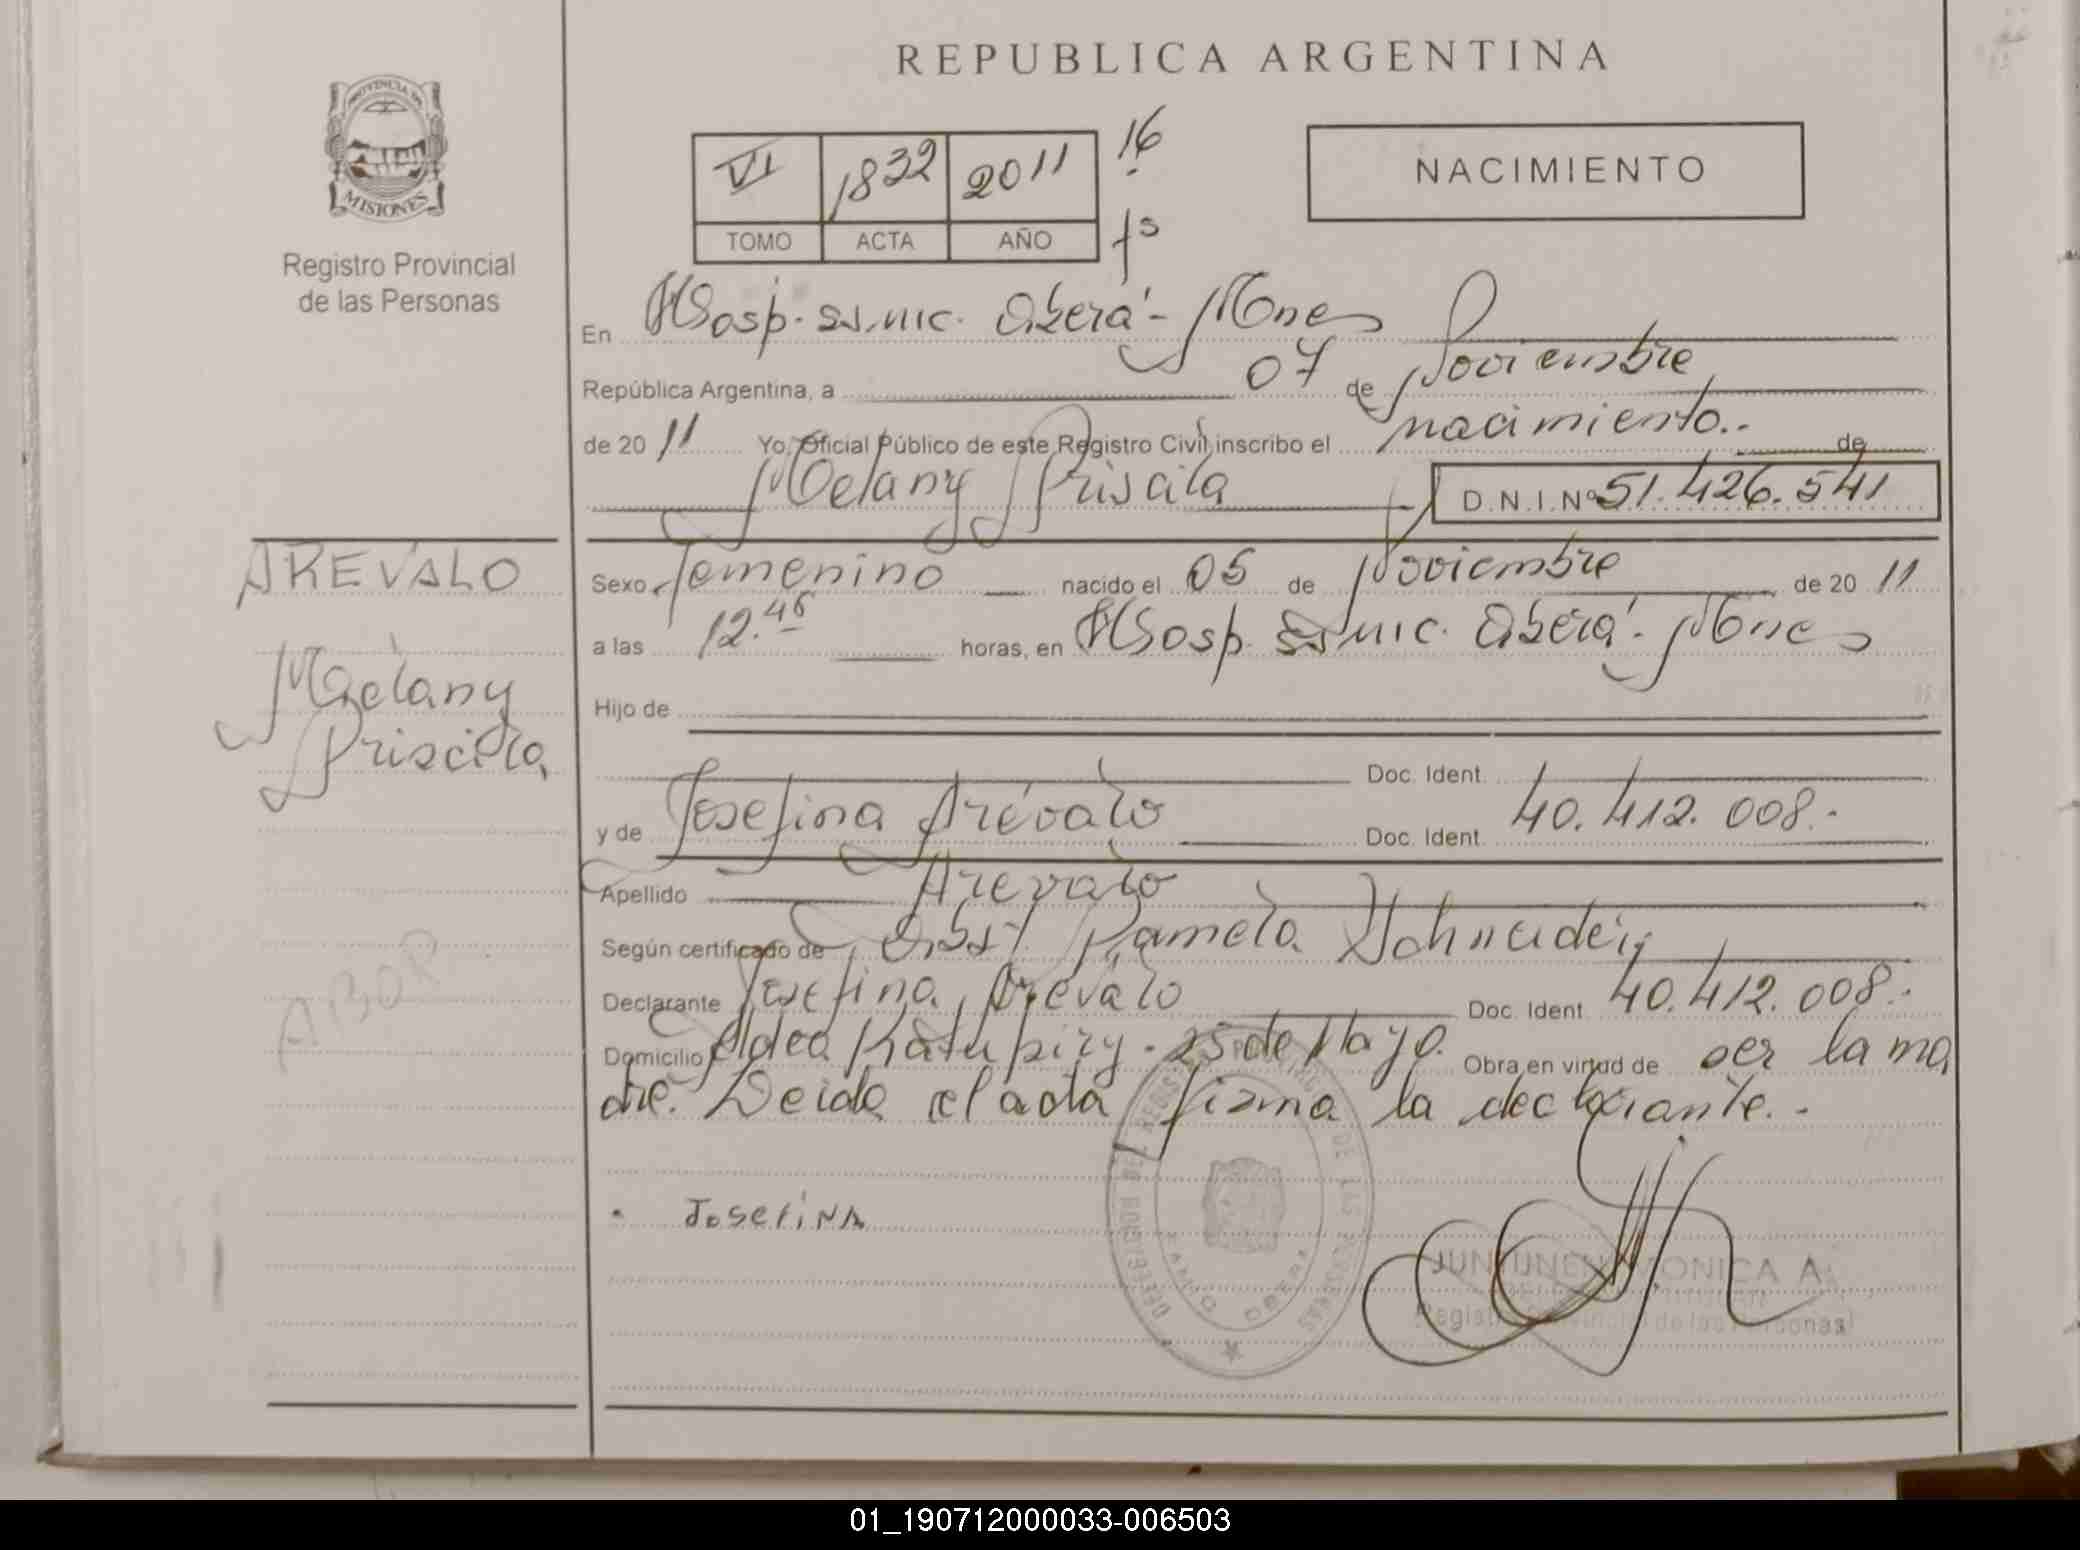 REPUBLICA ARGENTINA
PROVINCIA DE
MISIONES
Registro Provincial
de las Personas
VI 1832 2011 16
TOMO ACTA AÑO fs
NACIMIENTO
En Hosp. ss.nic. Oberá - Mnes
República Argentina, a 07 de Noviembre
de 20 11 Yo, Oficial Público de este Registro Civil inscribo el nacimiento.- de
Melany Priscila D.N.I.Nº 51.426.541
AREVALO
Melany
Priscila
Sexo Femenino nacido el 05 de Noviembre de 20 11
a las 12.45 horas, en Hosp. ss nic. Oberá - Mnes
Hijo de
Doc. Ident.
y de Josefina Arévalo Doc. Ident. 40.412.008.-
Apellido Arevalo
Según certificado de Obst. Pamela Schneider
Declarante Josefina Arévalo Doc. Ident. 40.412.008.-
Domicilio Aldea Katupiry - 25 de Mayo. Obra en virtud de ser la ma
dre. Leida el acta firma la declarante.-
ABOR
JosefiNA
DEL REGISTRO PROVINCIAL DE LAS PERSONAS
OBERA
MONICA A.
Registro Provincial de las Personas
01_190712000033-006503